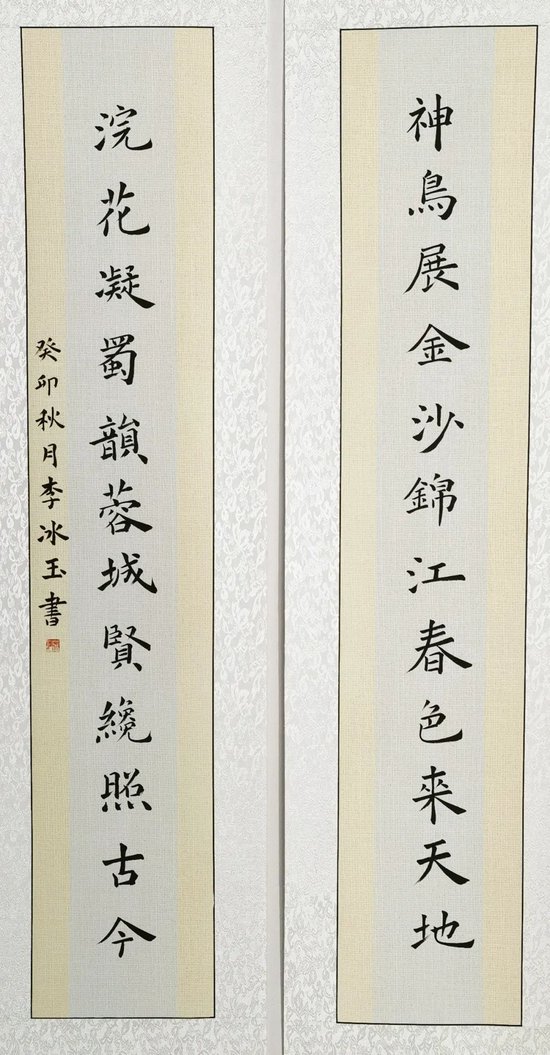 神鳥展金沙錦江春色來天地
浣花凝蜀韻蓉城賢纔照古今
癸卯秋月李冰玉書